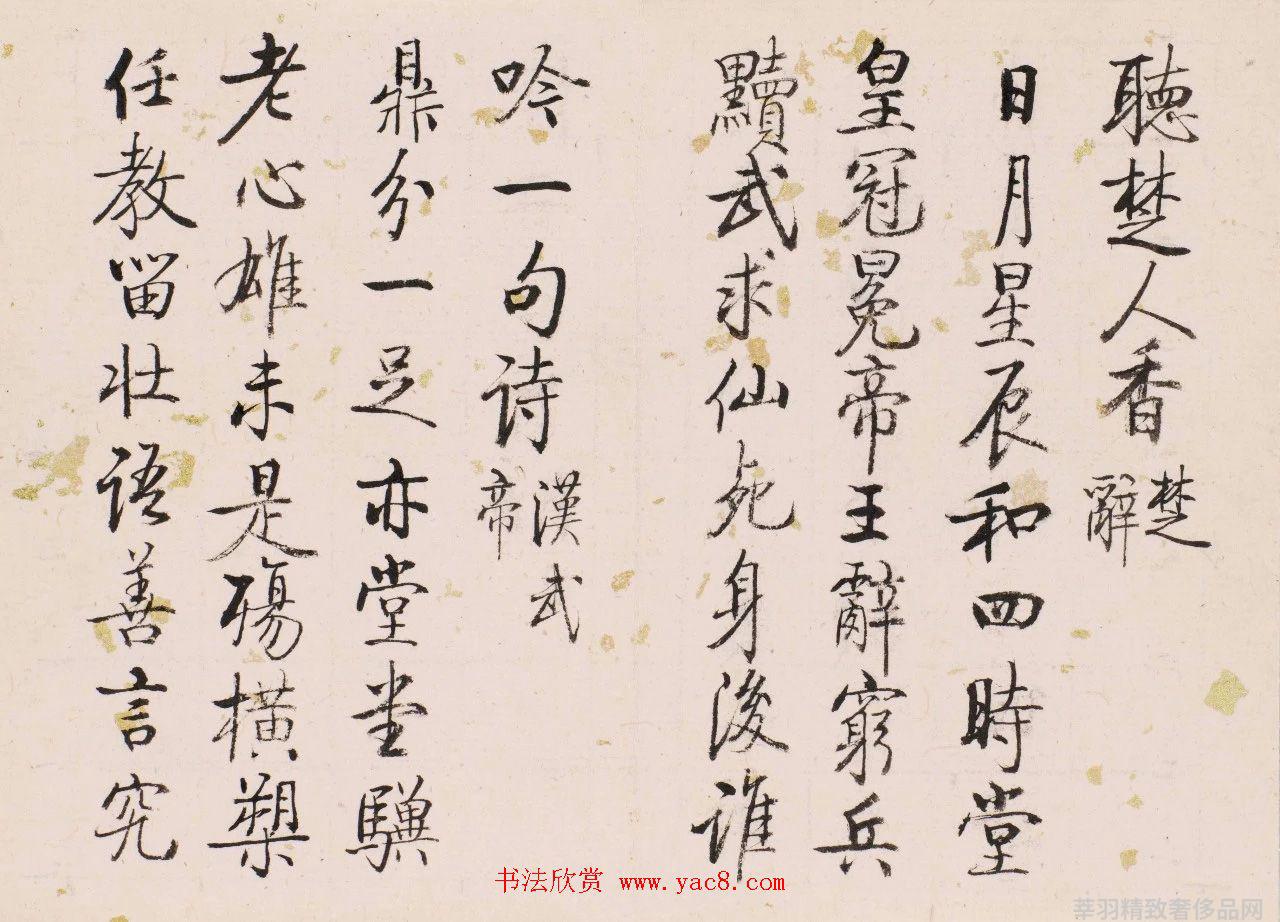 聽楚人香 楚辭
日月星辰和四時堂
皇冠冕帝王辭窮兵
黷武求仙死身後誰
吟一句詩 漢武帝
鼎分一足亦堂堂驥
老心雄未是殤橫槊
任教留壯語善言究
书法欣赏 www.yac8.com
莘羽精致奢侈品网